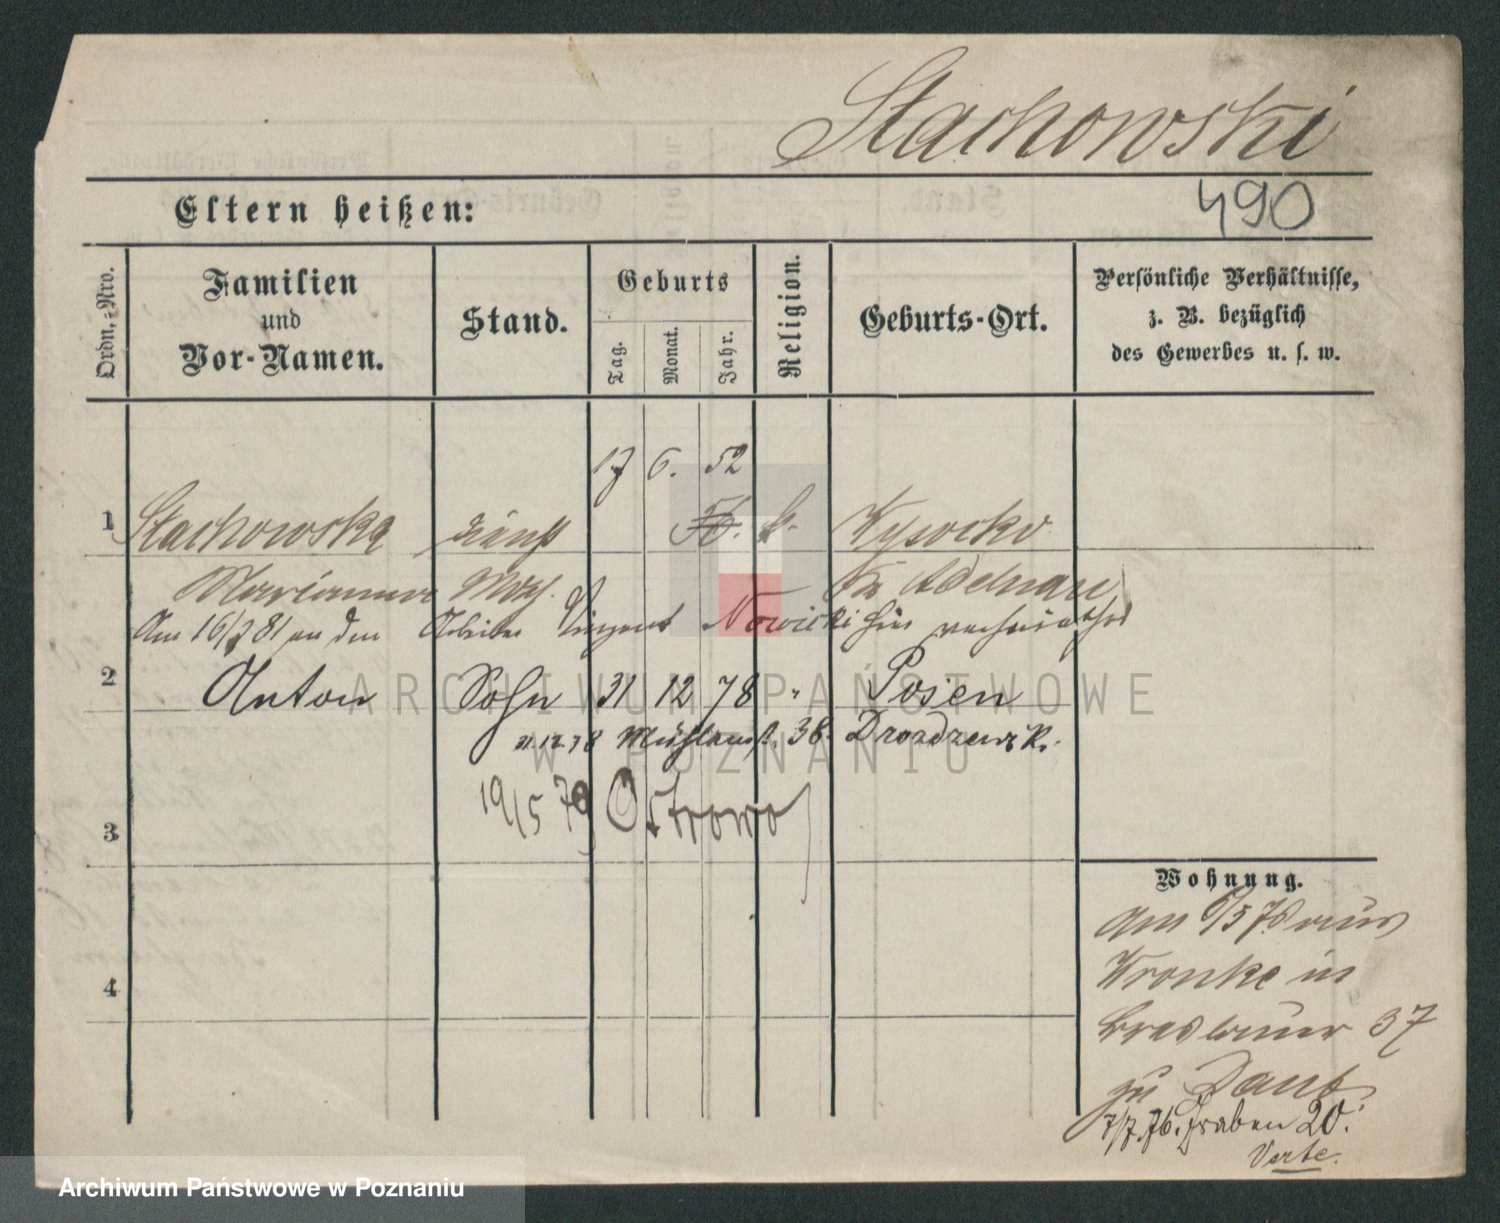 Stachowski
490
Eltern heißen:
Ordn.-Nro.
Familien
und
Vor-Namen.
Stand.
Geburts
Tag.
Monat.
Jahr.
Religion.
Geburts-Ort.
Persönliche Verhältnisse,
z. B. bezüglich
des Gewerbes u. s. w.
17 6. 52
1 Stachowska dienst 56. k. Wysocko
Marianna Mag. Kr Adelnau
Am 16/7 81 an den Arbeiter Vinzent Nowicki hier verheirathet
2 Anton Sohn 31 12 78 " Posen
31.12.78 Mühlenst. 38.
19/5 79 Ostrowo
3
4
Wohnung.
am 6/5 76 aus
Wronke in
Breslauer 37
zu
7/7.76. Graben 20.
Verte.
ARCHIWUM PAŃSTWOWE
W POZNANIU
Archiwum Państwowe w Poznaniu